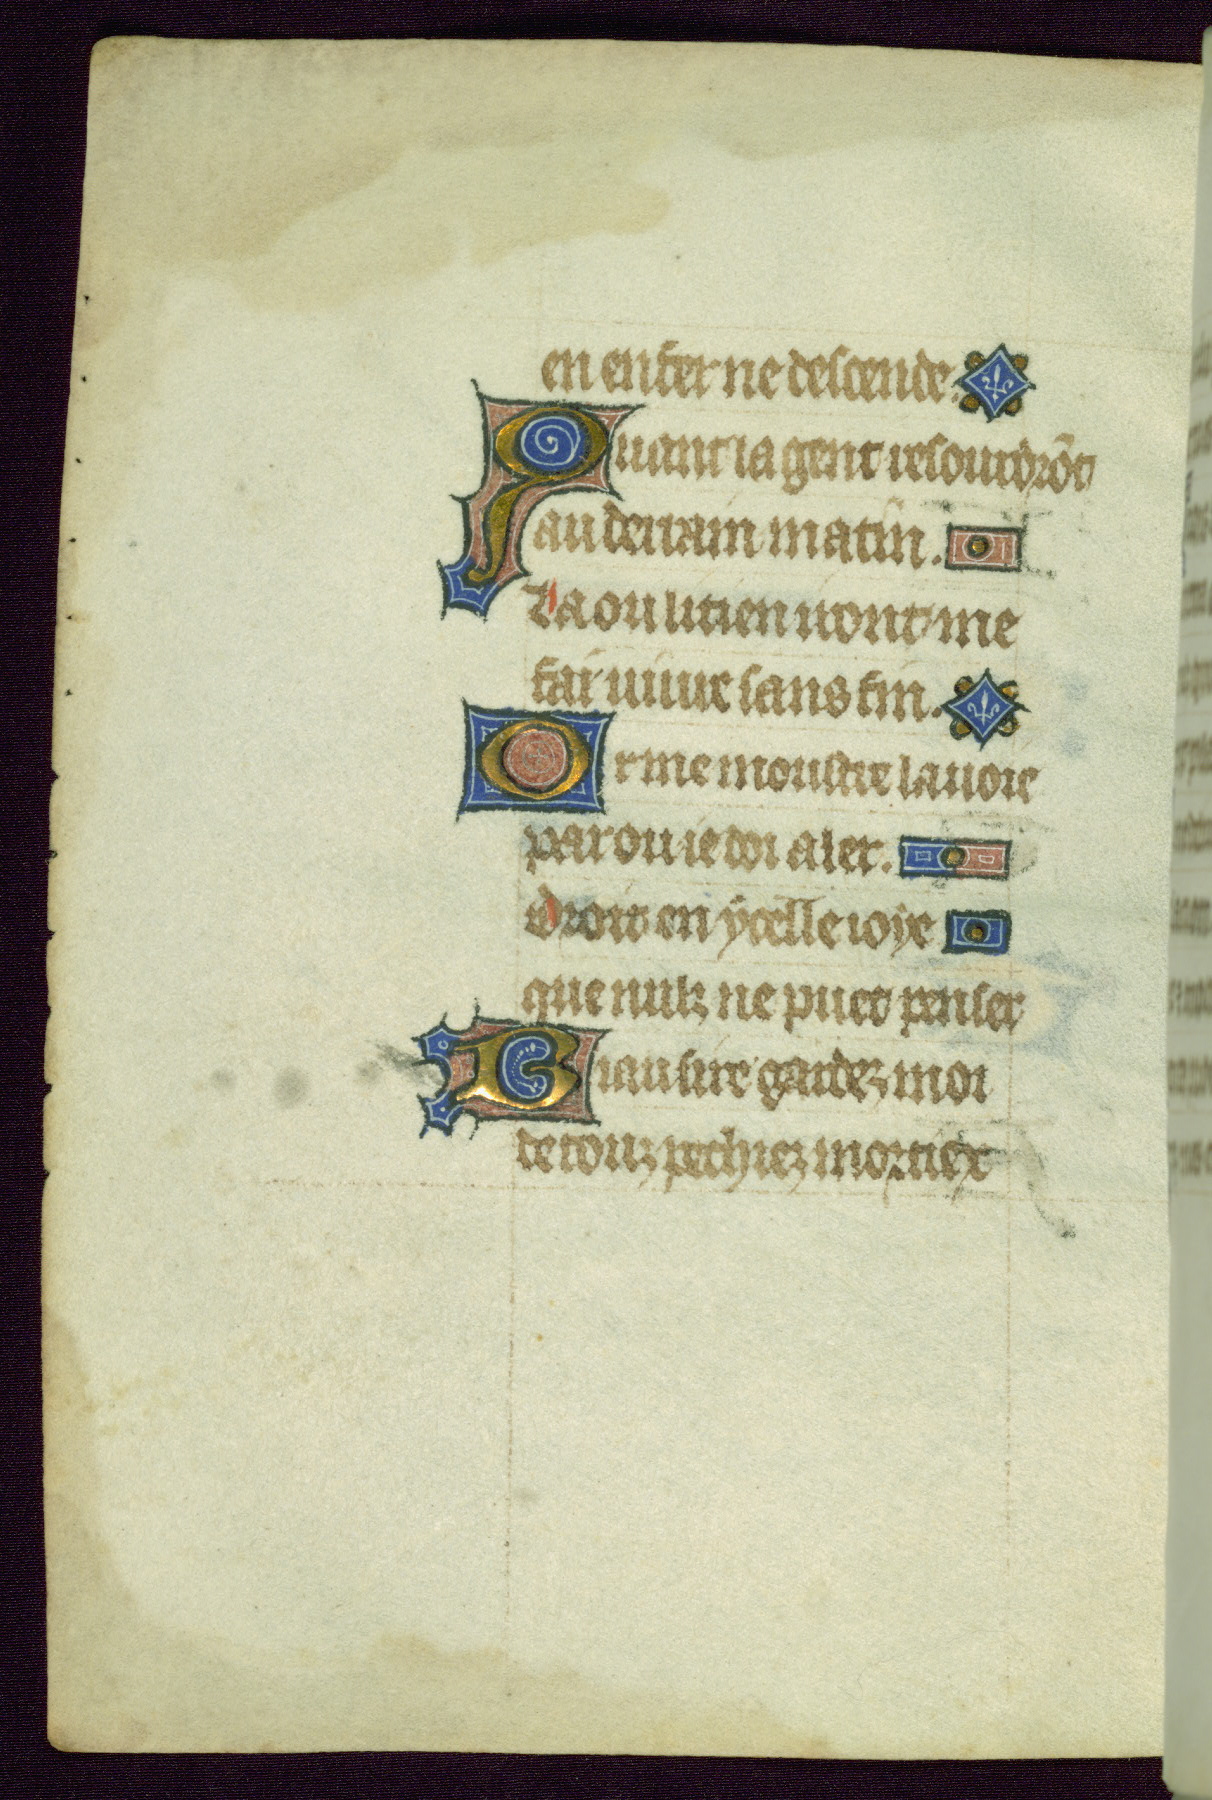 en enfer ne descende.
Quant la gent resourdrōt
au derrain matin.
La ou li tien uont me
fai uiure sans fin.
Or me moustre la uoie
par ou ie doi aler.
droit en ẏcelle ioẏe
que nulz ne puet penser
Biau sire gardez moi
de touz pechiez mortiex